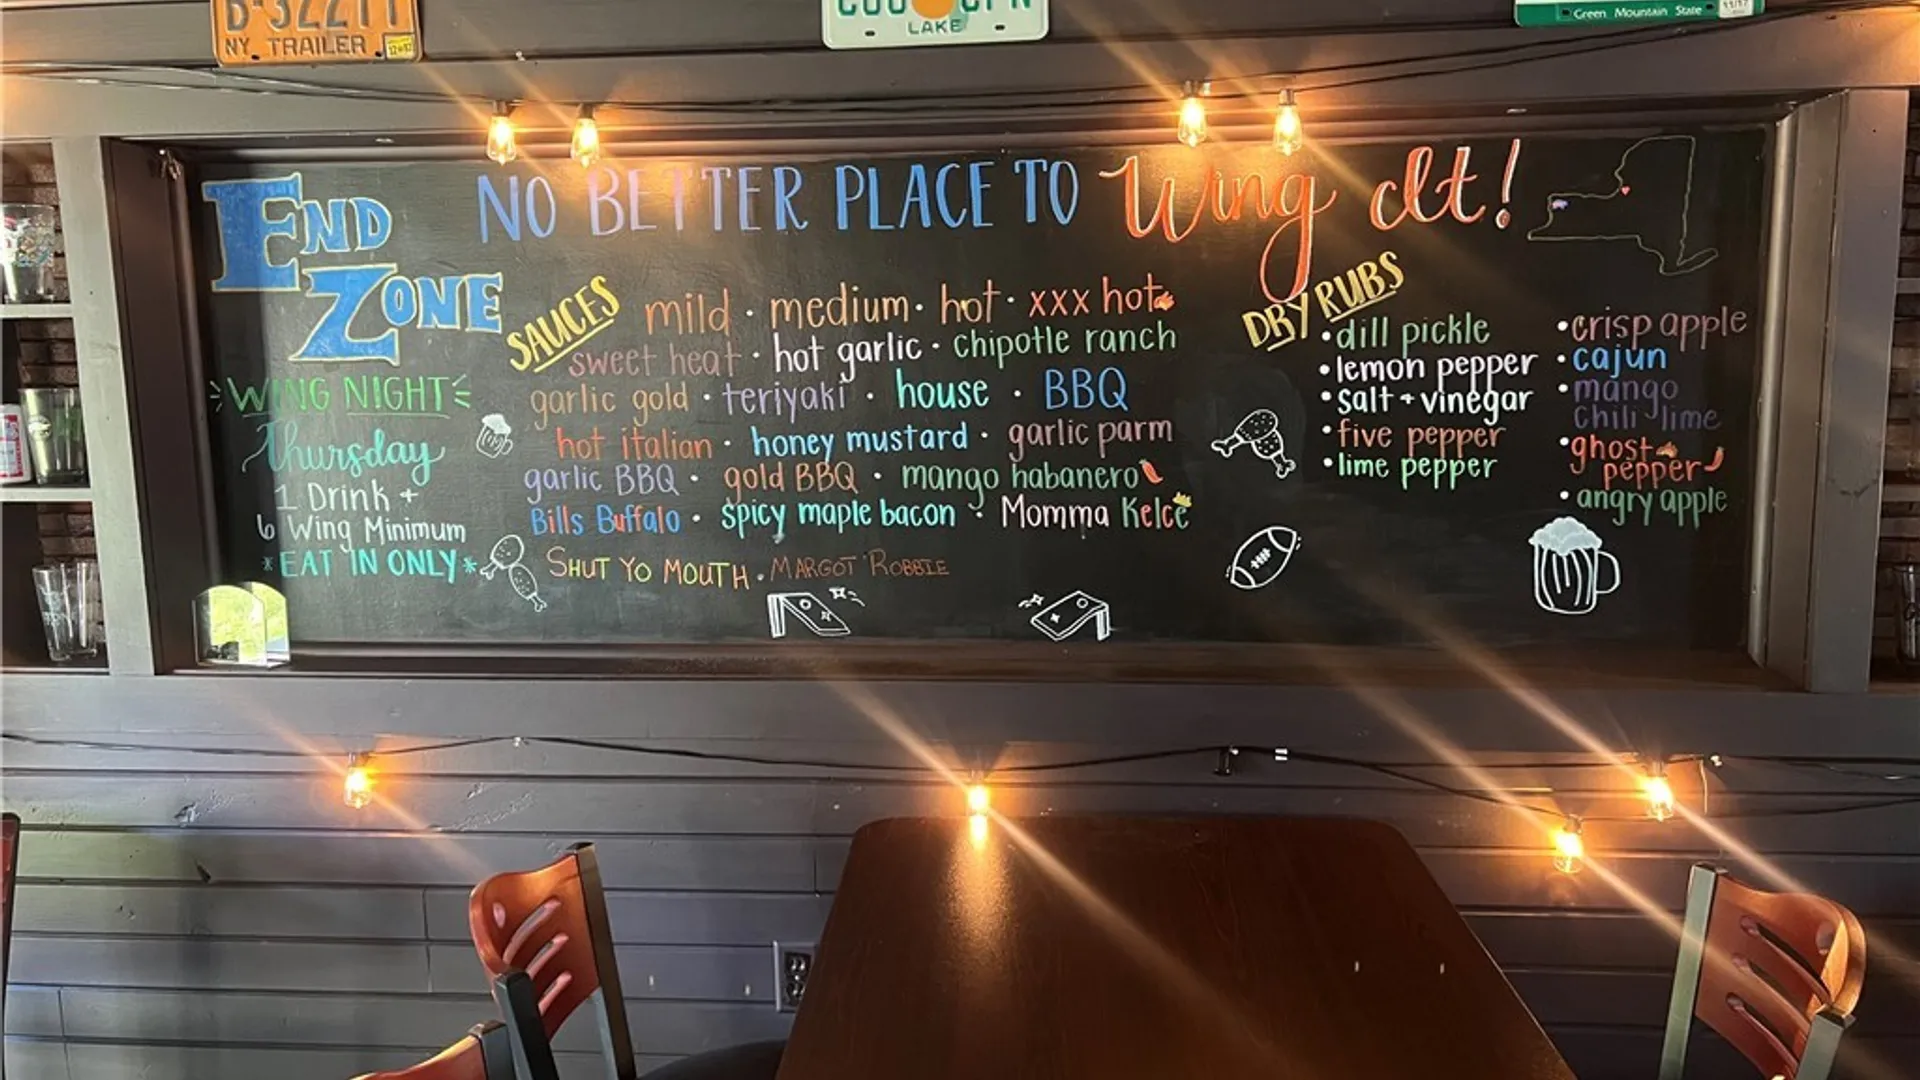 NY TRAILER
LAKE
Green Mountain State
END ZONE
NO BETTER PLACE TO Wing It!
WING NIGHT
Thursday
1 Drink +
6 Wing Minimum
*EAT IN ONLY*
SAUCES
mild · medium · hot · xxx hot
sweet heat · hot garlic · chipotle ranch
garlic gold · teriyaki · house · BBQ
hot italian · honey mustard · garlic parm
garlic BBQ · gold BBQ · mango habanero
Bills Buffalo · spicy maple bacon · Momma Kelce
SHUT YO MOUTH · MARGOT ROBBIE
DRY RUBS
•dill pickle
•lemon pepper
•salt + vinegar
•five pepper
•lime pepper
•crisp apple
•cajun
•mango
chili lime
•ghost
pepper
•angry apple